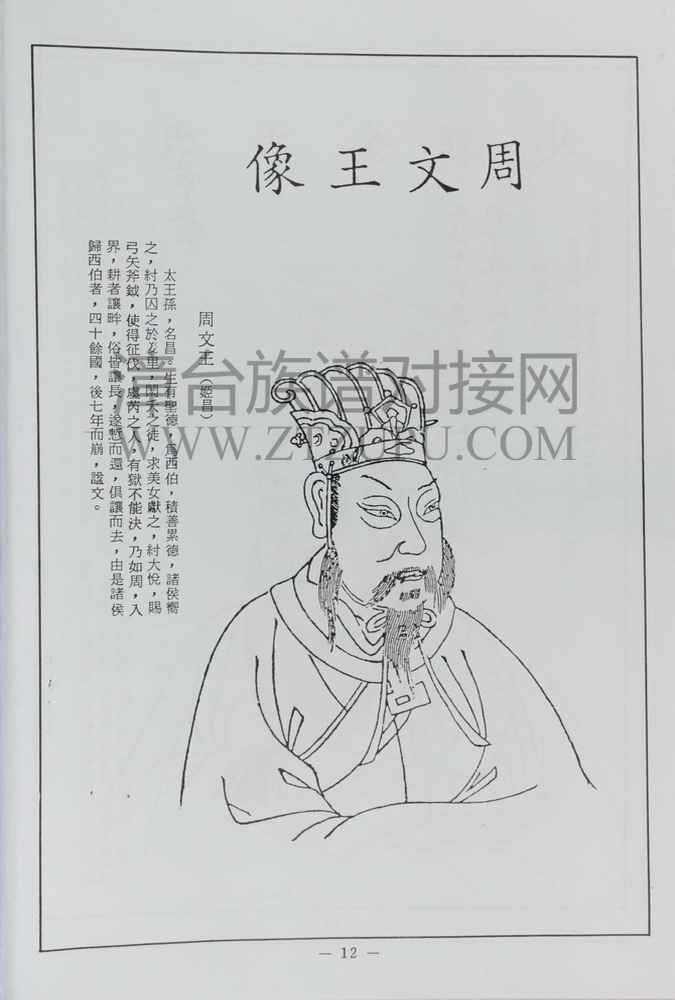 周文王像
周文王（姬昌）
太王孫，名昌。生有聖德，爲西伯，積善累德，諸侯嚮
之，紂乃囚之於羑里，閎夭之徒，求美女獻之，紂大悅，賜
弓矢斧鉞，使得征伐，虞芮之人，有獄不能決，乃如周，入
界，耕者讓畔，俗皆讓長，遂慙而還，俱讓而去，由是諸侯
歸西伯者，四十餘國，後七年而崩，諡文。
清台族谱对接网
WWW.ZTZUPU.COM
— 12 —